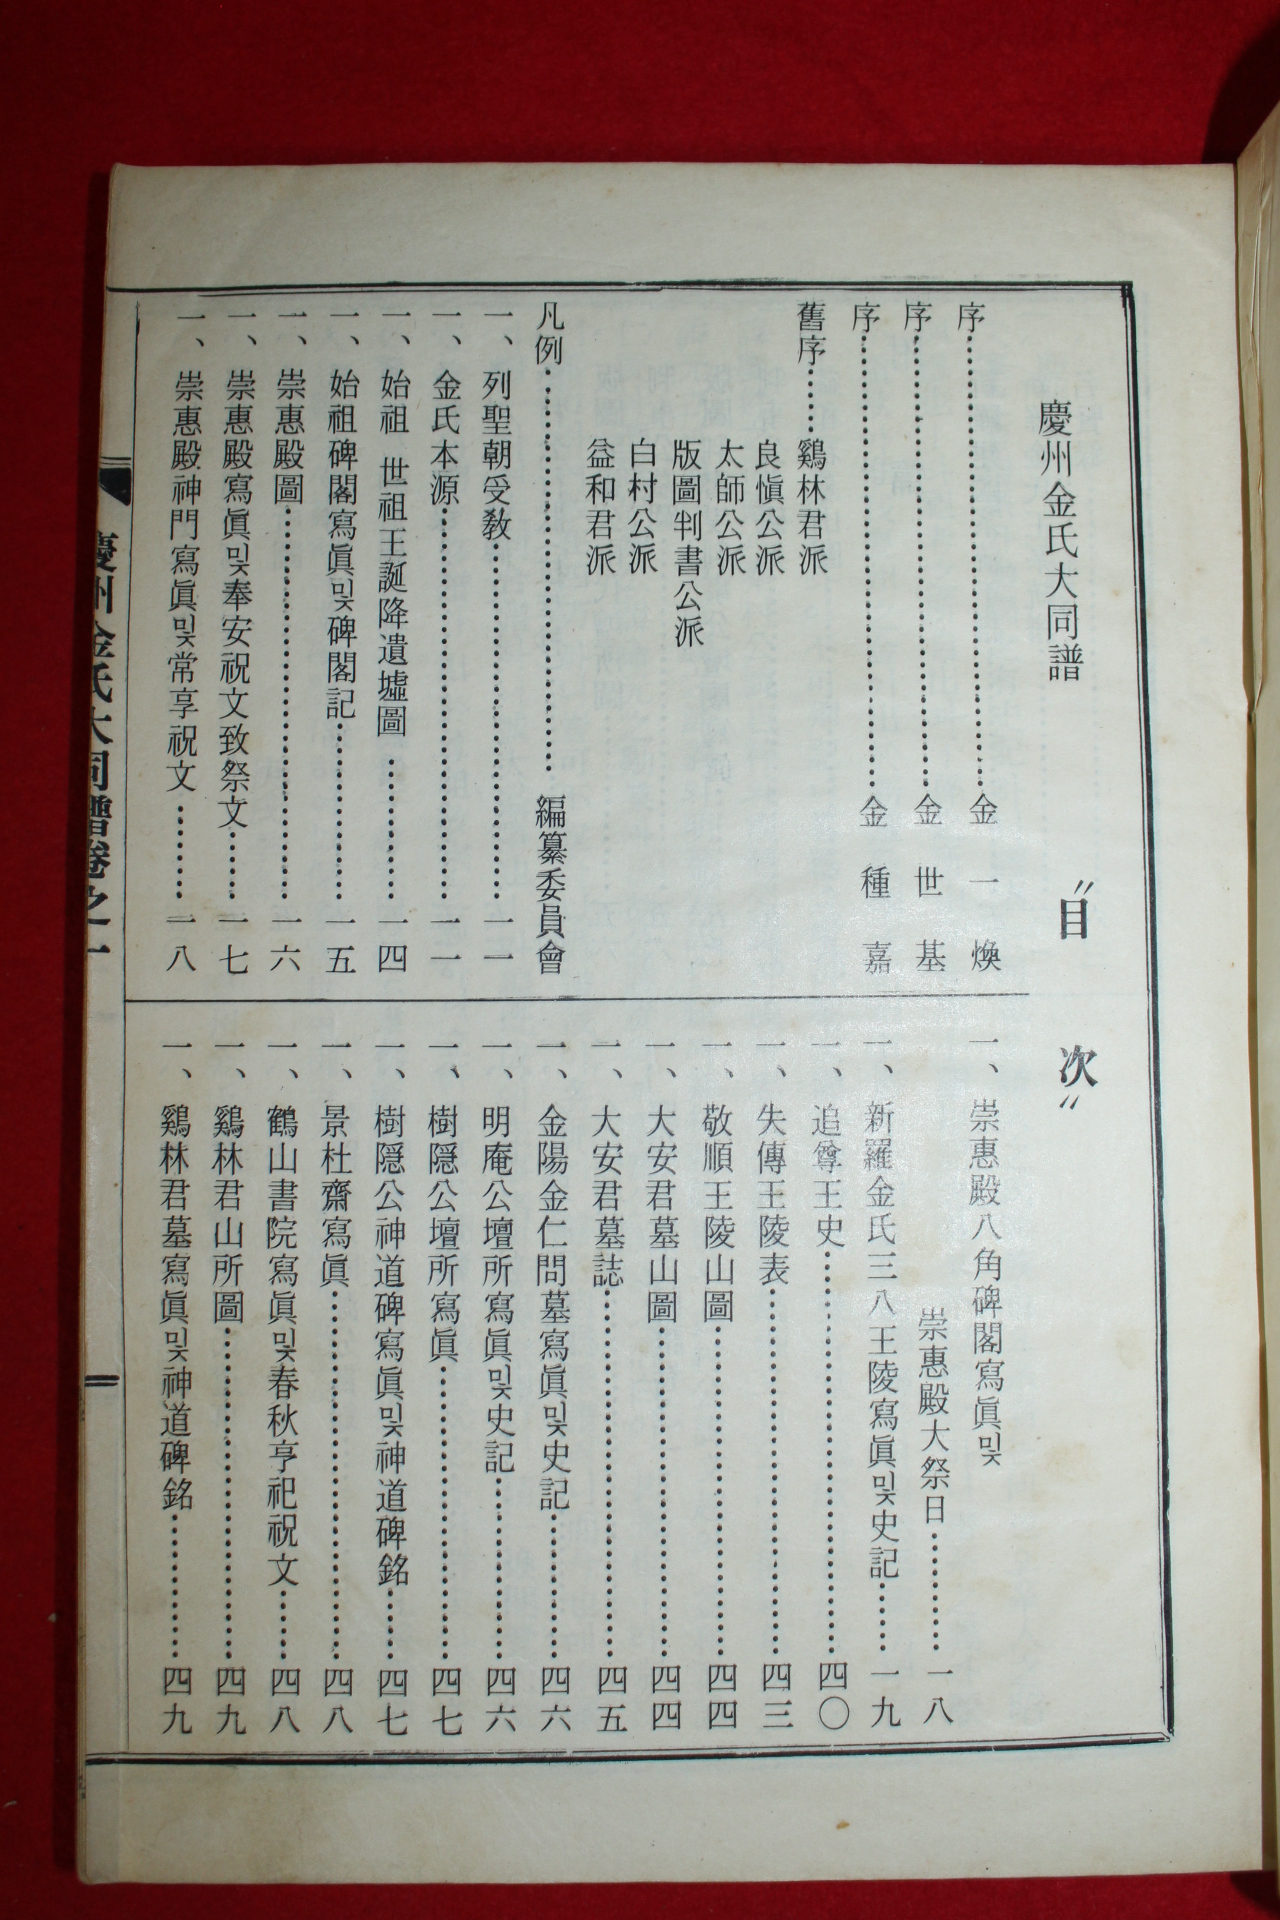 慶州金氏大同譜
〃目次〃
序……金一煥
序……金世基
序……金種嘉
舊序……鷄林君派
良愼公派
太師公派
版圖判書公派
白村公派
益和君派
凡例……編纂委員會
一、列聖朝受敎……一一
一、金氏本源……一二
一、始祖 世祖王誕降遺墟圖……一四
一、始祖碑閣寫眞및碑閣記……一五
一、崇惠殿圖……一六
一、崇惠殿寫眞및奉安祝文致祭文……一七
一、崇惠殿神門寫眞및常享祝文……一八
一、崇惠殿八角碑閣寫眞및
崇惠殿大祭日……一八
一、新羅金氏三八王陵寫眞및史記……一九
一、追尊王史……四〇
一、失傳王陵表……四三
一、敬順王陵山圖……四四
一、大安君墓山圖……四四
一、大安君墓誌……四五
一、金陽金仁問墓寫眞및史記……四六
一、明庵公壇所寫眞및史記……四六
一、樹隱公壇所寫眞……四七
一、樹隱公神道碑寫眞및神道碑銘……四七
一、景杜齋寫眞……四八
一、鶴山書院寫眞및春秋亨祀祝文……四八
一、鷄林君山所圖……四九
一、鷄林君墓寫眞및神道碑銘……四九
慶州金氏大同譜卷之一